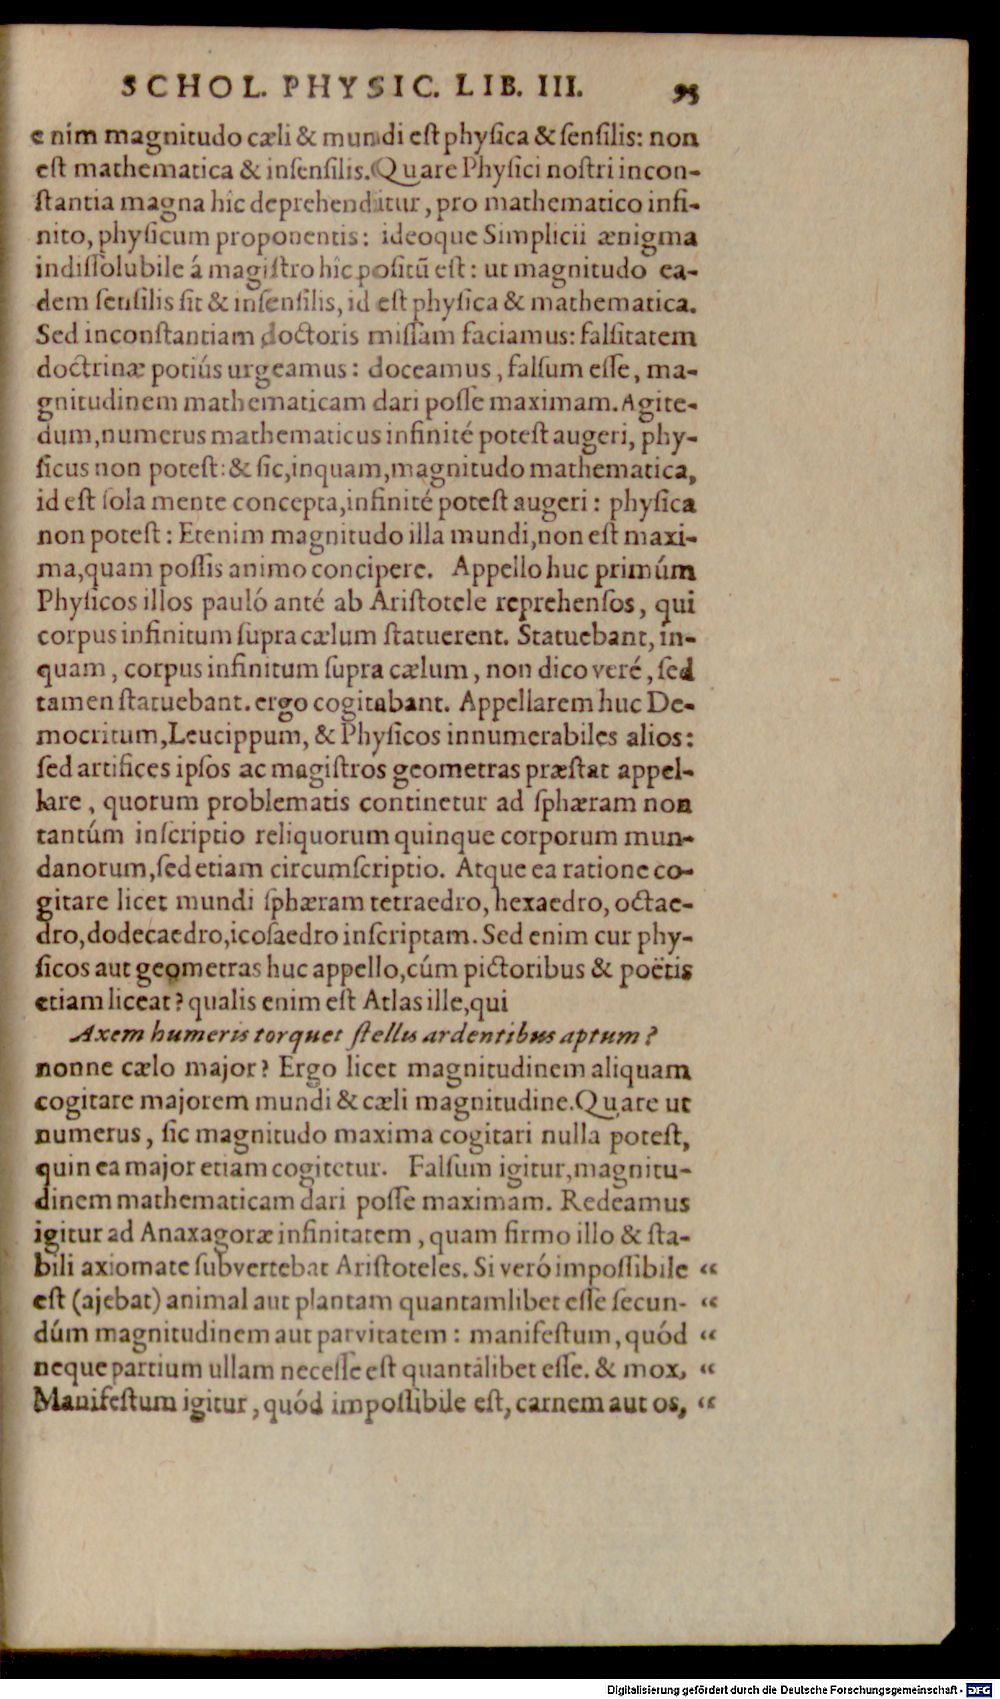 SCHOL. PHYSIC. LIB. III. 95
enim magnitudo cæli & mundi eſt phyſica & ſenſilis: non
eſt mathematica & inſenſilis. Quare Phyſici noſtri incon-
ſtantia magna hîc deprehenditur, pro mathematico infi-
nito, phyſicum proponentis: ideoque Simplicii ænigma
indiſſolubile á magiſtro hîc poſitū eſt: ut magnitudo ea-
dem ſenſilis ſit & inſenſilis, id eſt phyſica & mathematica.
Sed inconſtantiam doctoris miſſam faciamus: falſitatem
doctrinæ potiús urgeamus: doceamus, falſum eſſe, ma-
gnitudinem mathematicam dari poſſe maximam. Agite-
dum, numerus mathematicus infinité poteſt augeri, phy-
ſicus non poteſt: & ſic, inquam, magnitudo mathematica,
id eſt ſola mente concepta, infinité poteſt augeri: phyſica
non poteſt: Etenim magnitudo illa mundi, non eſt maxi-
ma, quam poſſis animo concipere. Appello huc primúm
Phyſicos illos pauló anté ab Ariſtotele reprehenſos, qui
corpus infinitum ſupra cælum ſtatuerent. Statuebant, in-
quam, corpus infinitum ſupra cælum, non dico veré, ſed
tamen ſtatuebant. ergo cogitabant. Appellarem huc De-
mocritum, Leucippum, & Phyſicos innumerabiles alios:
ſed artifices ipſos ac magiſtros geometras præſtat appel-
lare, quorum problematis continetur ad ſphæram non
tantúm inſcriptio reliquorum quinque corporum mun-
danorum, ſed etiam circumſcriptio. Atque ea ratione co-
gitare licet mundi ſphæram tetraedro, hexaedro, octae-
dro, dodecaedro, icoſaedro inſcriptam. Sed enim cur phy-
ſicos aut geometras huc appello, cúm pictoribus & poëtis
etiam liceat? qualis enim eſt Atlas ille, qui
Axem humeris torquet ſtellis ardentibus aptum?
nonne cælo major? Ergo licet magnitudinem aliquam
cogitare majorem mundi & cæli magnitudine. Quare ut
numerus, ſic magnitudo maxima cogitari nulla poteſt,
quin ea major etiam cogitetur. Falſum igitur, magnitu-
dinem mathematicam dari poſſe maximam. Redeamus
igitur ad Anaxagoræ infinitatem, quam firmo illo & ſta-
bili axiomate ſubvertebat Ariſtoteles. Si veró impoſſibile “
eſt (ajebat) animal aut plantam quantamlibet eſſe ſecun- “
dúm magnitudinem aut parvitatem: manifeſtum, quód “
neque partium ullam neceſſe eſt quantālibet eſſe. & mox, “
Manifeſtum igitur, quód impoſſibile eſt, carnem aut os, “
Digitalisierung gefördert durch die Deutsche Forschungsgemeinschaft - DFG